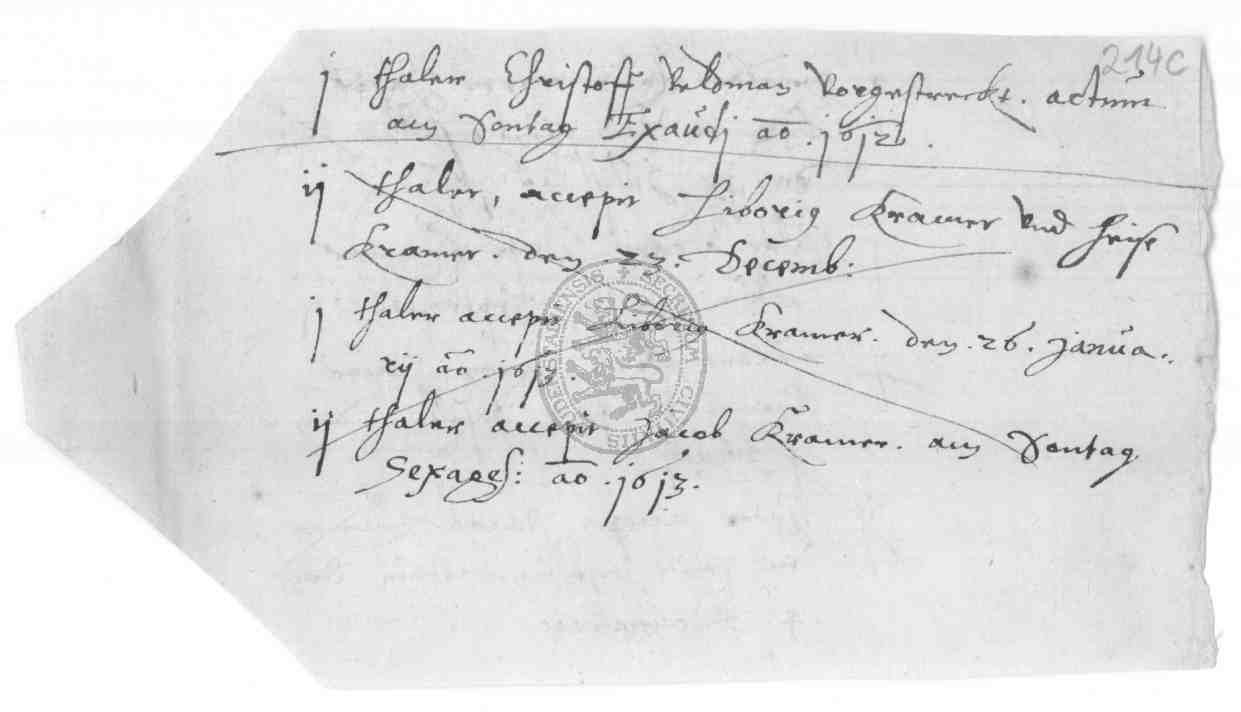 214C
j thaler Christoff Veldman vorgestreckt. actum
am Sontag Exaudi ao. 1612.
ij thaler, accepit Liborig Kramer vnd Heise
Kramer. den 23. Decemb:
j thaler accepit Liborig Kramer. den. 26. Janua..
rij ao. 1613.
ij thaler accepit Jacob Kramer. am Sontag
Sexages: ao. 1613.
SECRETUM CIVIUM